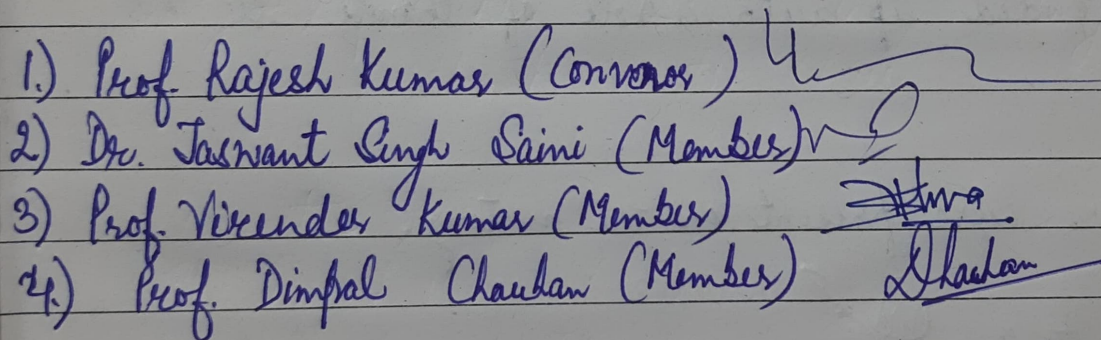 1.) Prof. Rajesh Kumar (Convenor)
2) Dr. Jaswant Singh Saini (Member)
3) Prof. Virender Kumar (Member)
4.) Prof. Dimpal Chauhan (Member) DChauhan